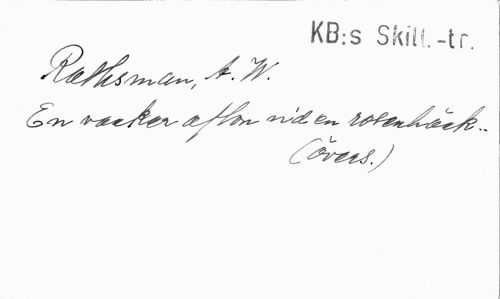 KB:s Skill.-tr.
Rathsman, A. W.
En vacker afton vid en rosenhäck..
(övers.)